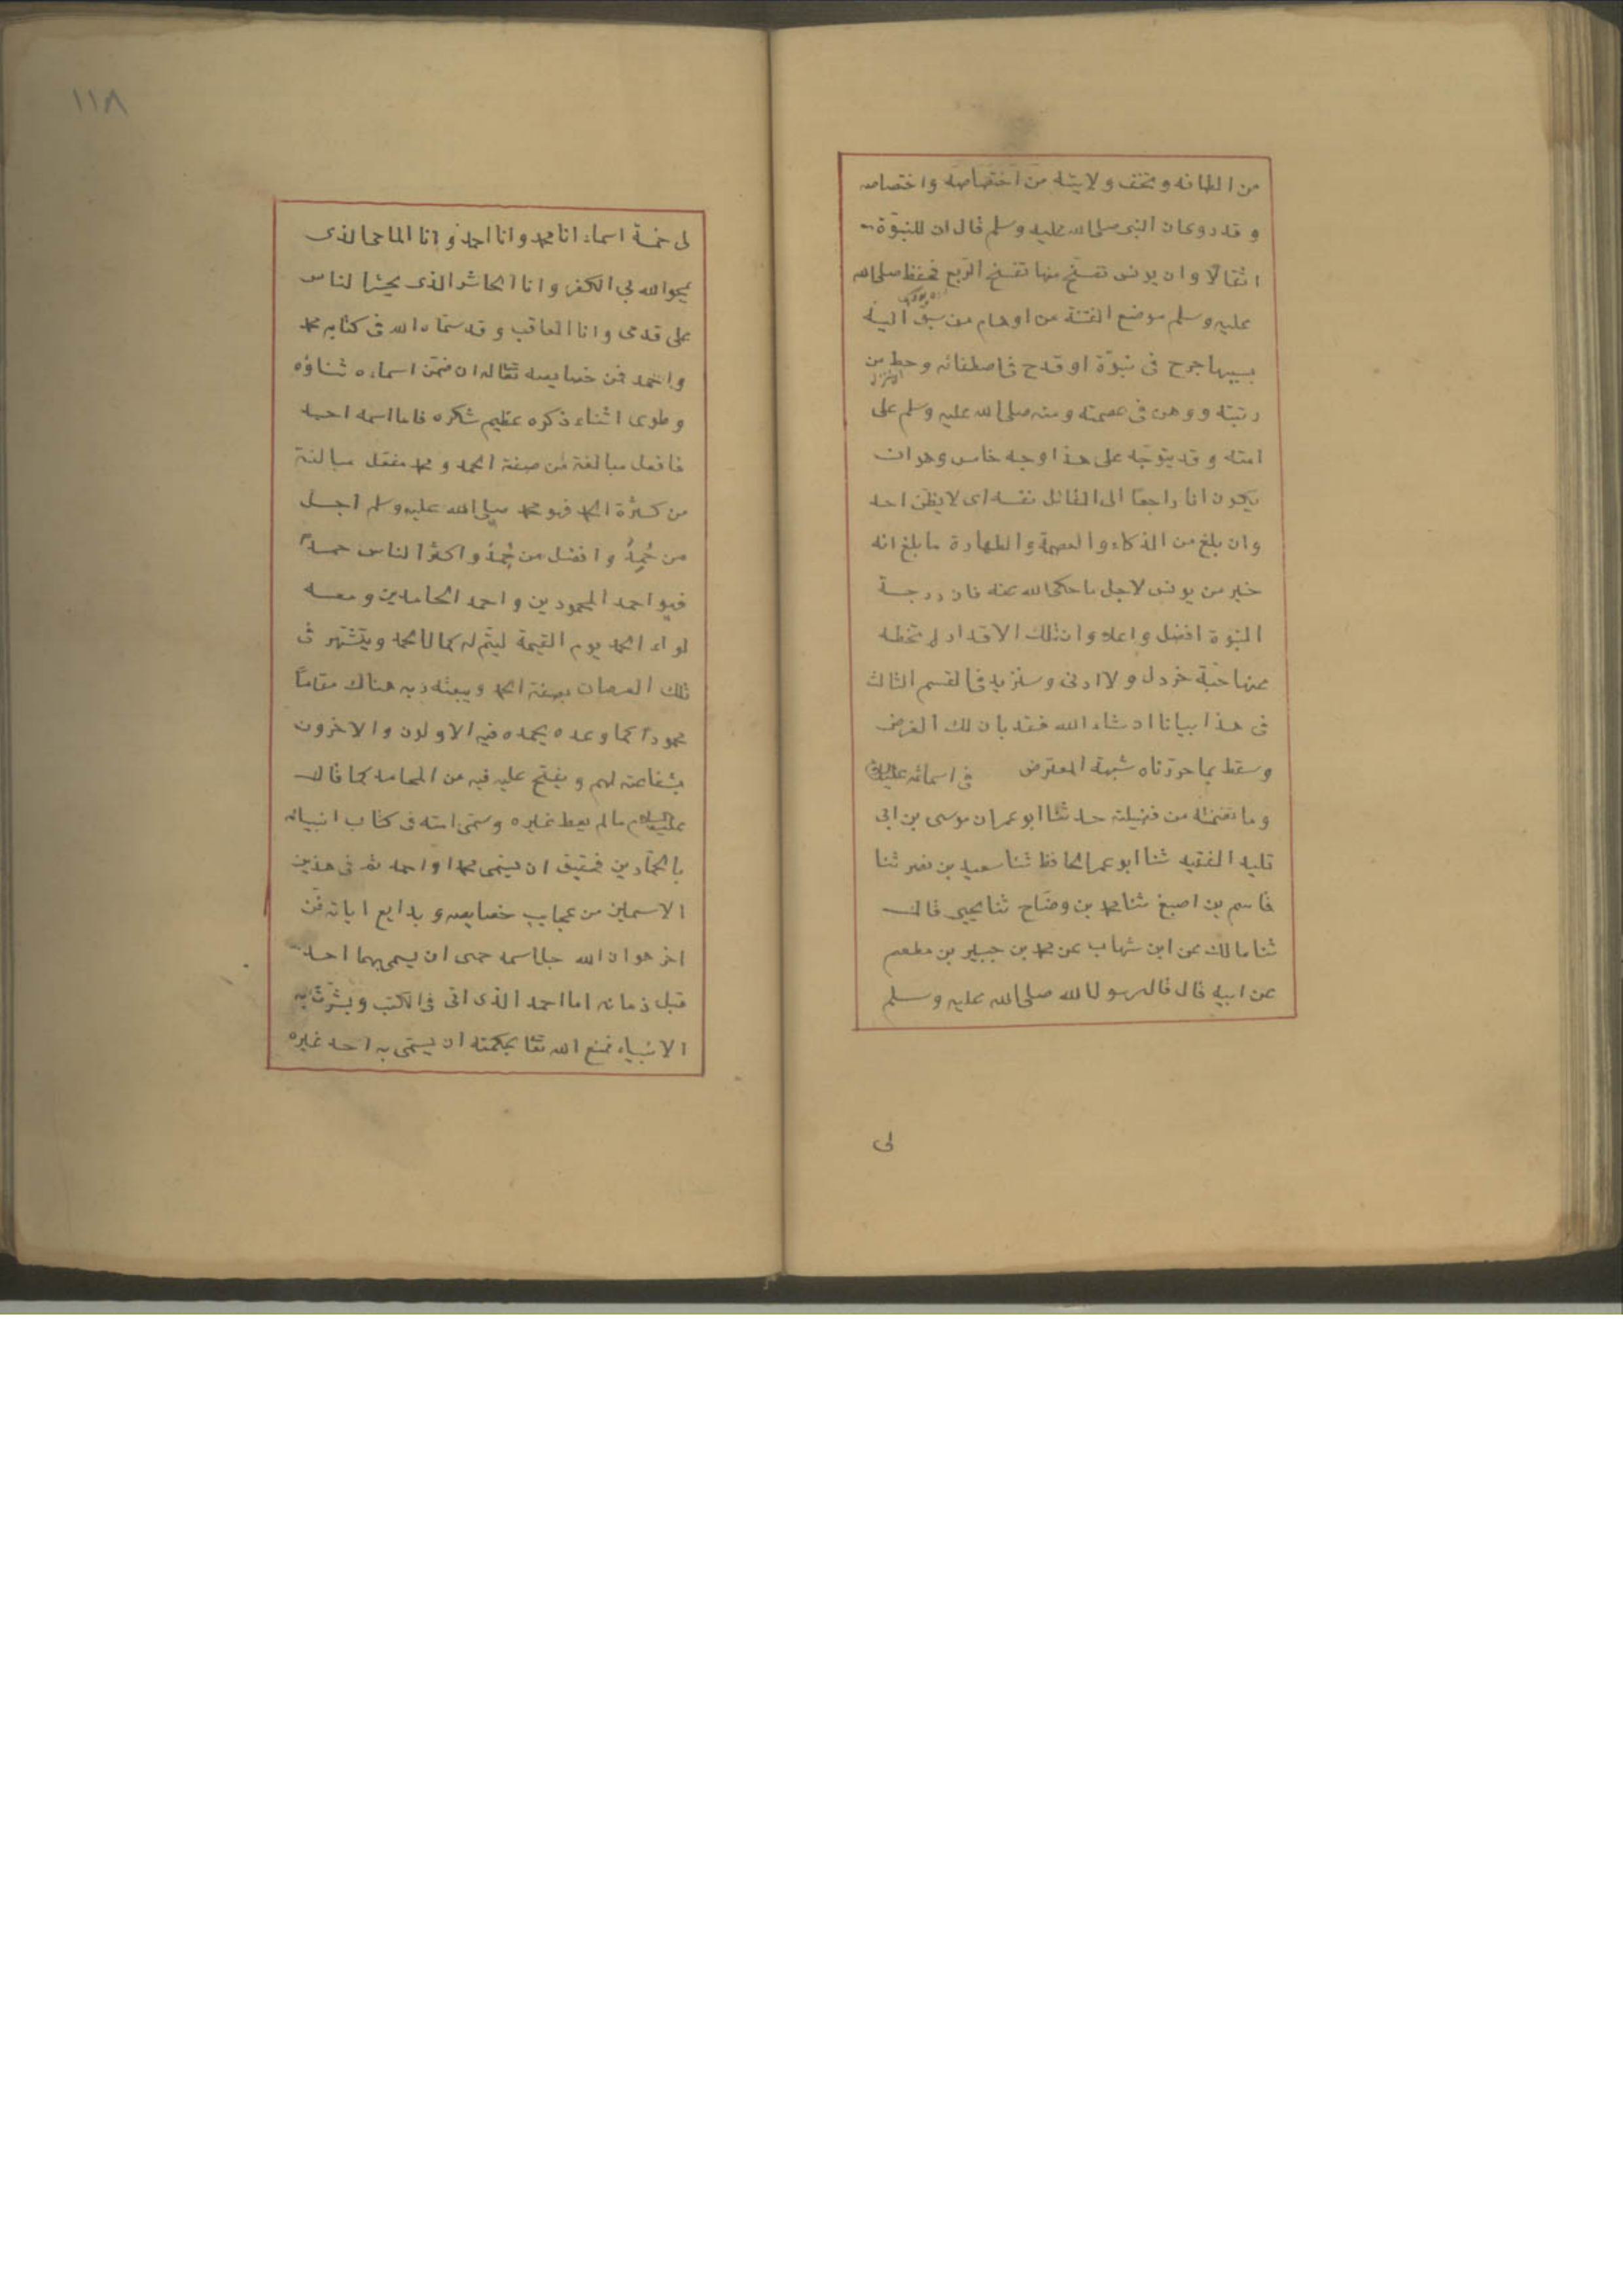 من الطافه وتحف ولايته من اختصاصه واختصاصه
وقد روى ان النبى صلى الله عليه وسلم قال ان للنبوّة
اثقالا وان يونس تفسّخ منها تفسخ الربع فحفظ صلى الله
عليه وسلم موضع الفتنة من اوهام من سبق اليه
بسببها جرح فى نبوّة او قدح فى اصطفائه وحط من
رتبته ووهن فى عصمته ومنه صلى الله عليه وسلم على
امته وقد يتوجّه على هذا وجه خامس وهو ان
يكون انا راجعا الى القائل نفسه اى لا يظن احد
وان بلغ من الذكاء والعصمة والطهارة ما بلغ انه
خير من يونس لاجل ما حكى الله عنه فان درجة
النبوة افضل واعلا وان تلك الاقدار لم تحطه
عنها حبّة خردل ولا ادنى وسنزيد فى القسم الثالث
فى هذا بيانا ان شاء الله فقد بان لك الغرض
وسقط بما حررناه شبهة المعترض فى اسمائه عليه السلام
وما تضمنته من فضيلته حدثنا ابو عمران موسى بن ابى
تليد الفقيه ثنا ابو عمر الحافظ ثنا سعيد بن نصر ثنا
قاسم بن اصبغ ثنا محمد بن وضّاح ثنا يحيى قال
ثنا مالك عن ابن شهاب عن محمد بن جبير بن مطعم
عن ابيه قال قال رسول الله صلى الله عليه وسلم
لى
١١٨
لى خمسة اسماء انا محمد وانا احمد وانا الماحى الذى
يمحوا الله بى الكفر وانا الحاشر الذى يحشر الناس
على قدمى وانا العاقب وقد سمّاه الله فى كتابه محمد
واحمد فمن خصايصه تعالى له ان ضمّن اسماءه ثناؤه
وطوى اثناء ذكره عظيم شكره فاما اسمه احمد
فافعل مبالغة من صفة الحمد ومحمد مفعل مبالغة
من كثرة الحمد فهو محمد صلى الله عليه وسلم اجل
من حُمِدَ وافضل من حُمِدَ واكثر الناس حمداً
فهو احمد المحمودين واحمد الحامدين ومعه
لواء الحمد يوم القيمة ليتم له كمال الحمد ويتشتهر فى
تلك العرصات بصفة الحمد ويبعثه ربه هناك مقاماً
محموداً كما وعده يحمده فيه الاولون والاخرون
بشفاعته لهم ويفتح عليه فيه من المحامد كما قال
عليه السلام ما لم يعط غيره وسمّى امته فى كتاب انبيائه
بالحمّادين فحقيق ان يسمّى محمدا واحمد ثم فى هذين
الاسمين من عجايب خصايصه وبدايع اياته فنّ
اخر هو ان الله جل اسمه حمى ان يسمى بهما احد
قبل زمانه اما احمد الذى اتى فى الكتب وبشّرت به
الانبياء فمنع الله تعا بحكمته ان يسمّى به احد غيره